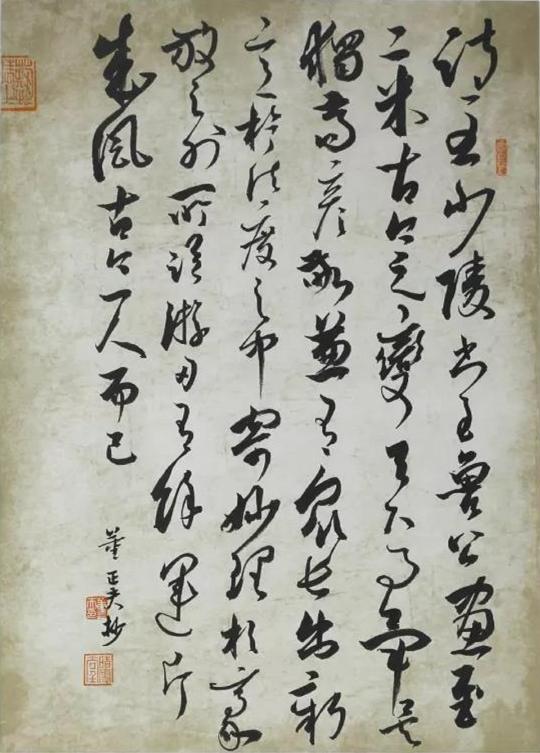 詩至少陵書至魯公畫至
二米古今之變天下事畢矣
獨高彦敬兼有眾長出新
意於法度之中寄妙理於豪
放之外所謂游刃有餘運斤
成風古今一人而已
董正夫抄